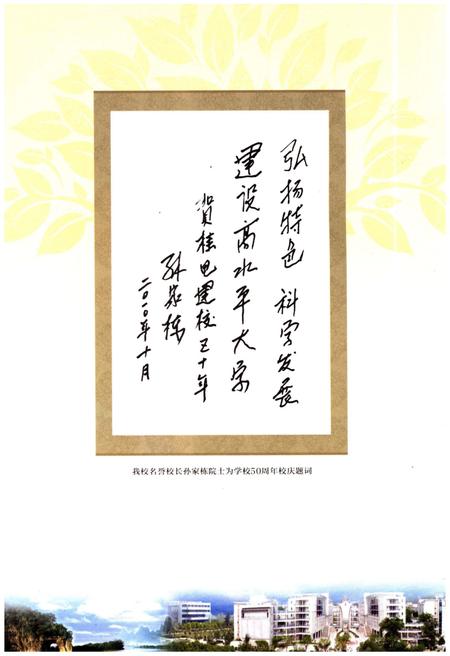 弘扬特色 科学发展
建设高水平大学
贺桂电建校五十年
孙家栋
二〇一〇年十月
我校名誉校长孙家栋院士为学校50周年校庆题词